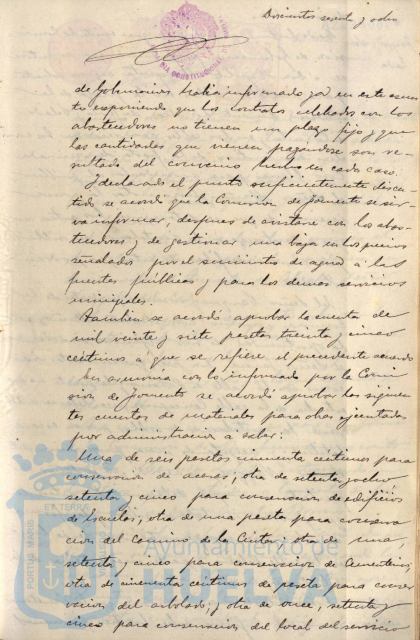 Doscientos sesenta y ocho
de Gobernacion había informado ya en este asun-
to exponiendo que los contratos celebrados con los
abastecedores no tienen un plazo fijo y que
las cantidades que vienen pagándose son re-
sultado del convenio hecho en cada caso.
Y declarado el punto suficientemente discu-
tido se acordó que la Comision de Fomento se sir-
va informar, despues de avistarse con los abas-
tecedores y de gestionar una baja en los precios
señalados por el suministro de agua á las
fuentes públicas y para los demas servicios
municipales.
Tambien se acordó aprobar la cuenta de
mil veinte y siete pesetas treinta y cinco
céntimos á que se refiere el precedente acuerdo
En armonía con lo informado por la Comi-
sion de Fomento se acordó aprobar las siguien-
tes cuentas de materiales para obras ejecutadas
por administracion a saber:
Una de seis pesetas cincuenta céntimos para
conservacion de aceras; otra de setenta y ocho,
setenta y cinco para conservacion de edificios
de Escuelas; otra de una peseta para conserva-
cion del Camino de la Cinta; otra de una,
setenta y cinco para conservacion de Cementerios;
otra de cincuenta céntimos de peseta para conser-
vacion del arbolado; y otra de once, setenta y
cinco para conservacion del local del servicio
Ayuntamiento de
HUELVA
PORTUS MARIS
ET TERRÆ